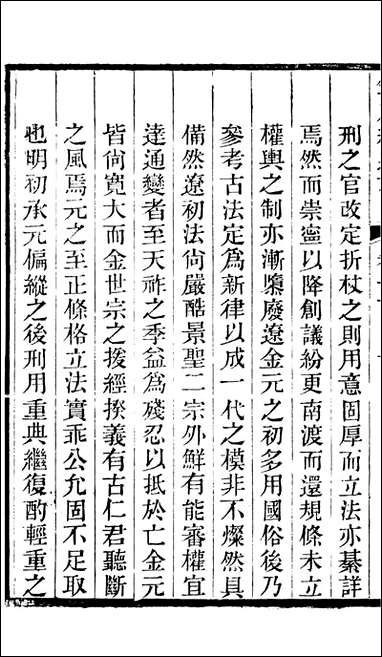 刑之官改定折杖之則用意固厚而立法亦綦詳
焉然而崇寧以降創議紛更南渡而還規條未立
權輿之制亦漸隳廢遼金元之初多用國俗後乃
參考古法定為新律以成一代之模非不燦然具
備然遼初法尚嚴酷景聖二宗外鮮有能審權宜
達通變者至天祚之季益為殘忍以抵於亡金元
皆尚寬大而金世宗之援經揆義有古仁君聽斷
之風焉元之至正條格立法實乖公允固不足取
也明初承元偏縱之後刑用重典繼復酌輕重之